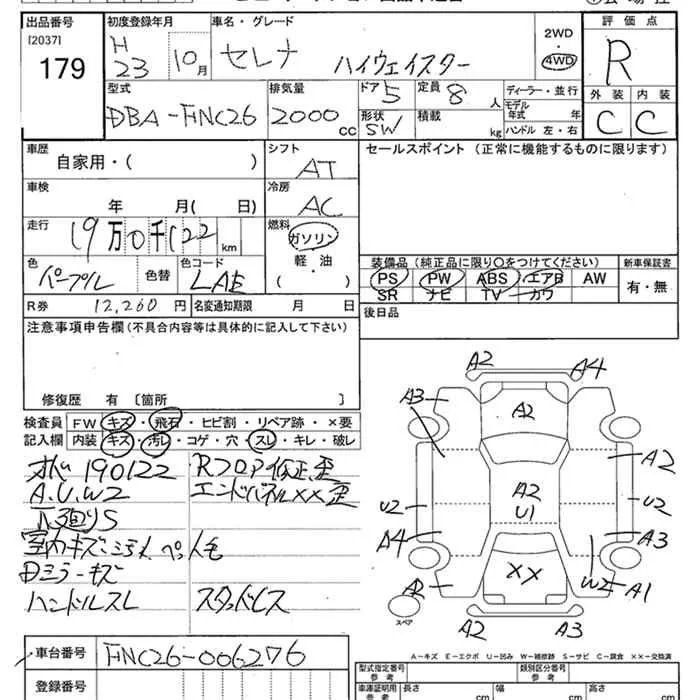 出品番号 初度登録年月 車名・グレード 評価点
[2037] 179 H23 10月 セレナ ハイウェイスター 2WD 4WD R
型式 排気量 ドア 定員 ディーラー・並行 外装 内装
DBA-FNC26 2000cc 5 8人 モデル年式 年式 C C
形状 SW 積載 kg ハンドル 左・右
車歴 シフト セールスポイント (正常に機能するものに限ります)
自家用・( ) AT
車検 冷房
年 月( 日) AC
走行 燃料
19万0千122km ガソリン
軽・油
( )
装備品 (純正品に限り○をつけてください) 新車保証書
色 色替 色コード PS PW ABS エアB AW 有・無
パープル LAE SR ナビ TV カワ
R券 12,260円 名変通知期限 月 日 後日品
注意事項申告欄(不具合内容等は具体的に記入して下さい)
修復歴 有 〔箇所
検査員 FW キズ・飛石・ヒビ割・リペア跡・×要
記入欄 内装 キズ・汚レ・コゲ・穴・スレ・キレ・破レ
190122 RフロアΛ修正、歪
A.U.W2 エンドパネル××歪
下廻りS
室内キズ・シミ
Dミラーキズ
ハンドルスレ スタッドレス
A2 A4
A3 A2
A2
A2 U1
U2 U2
A4 A3
XX W2 A1
A2
スペア A2 A3
A-キズ E-エクボ U-凹み W-補修跡 S-サビ C-腐食 ××-交換済
車台番号 FNC26-006276
登録番号
型式指定番号 参考 類別区分番号 参考
車庫証明用 参考 長さ cm 幅 cm 高さ cm